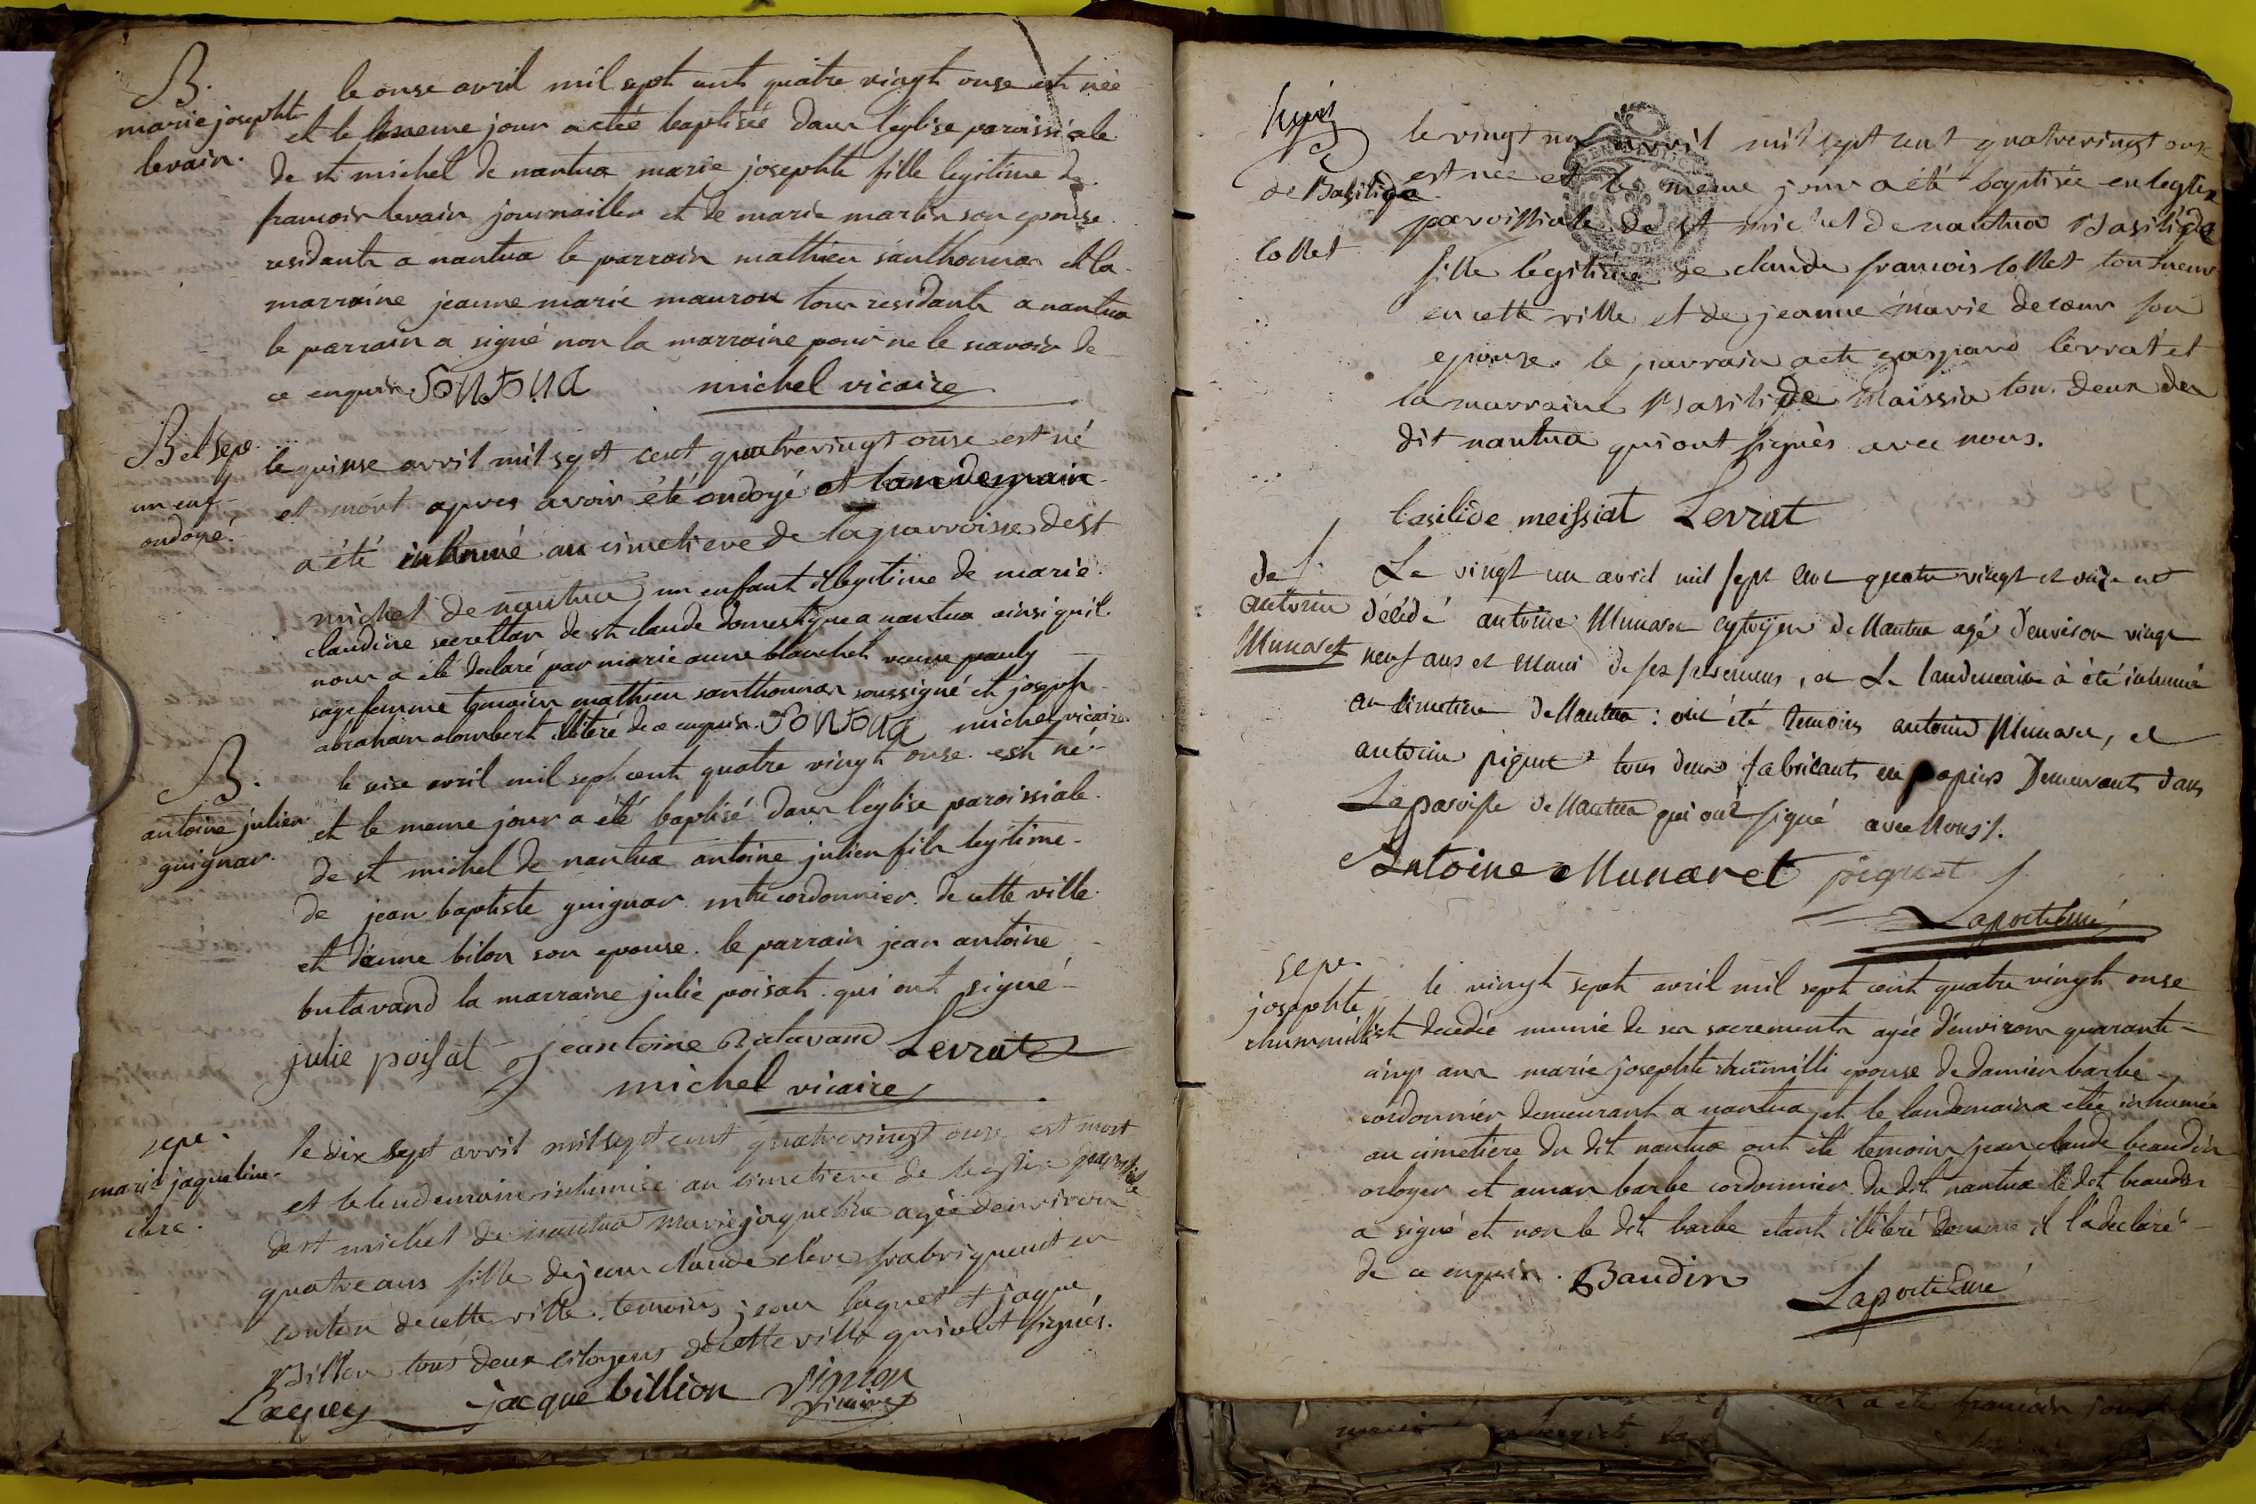 B.
marie josephte
levain.
le onse avril mil sept cent quatre vingt onse est née
et le meme jour a étée baptisée dans l'eglise paroissiale
de st michel de nantua marie josephte fille legitime de
francois levain journaillier et de marie martin son epouse
residants a nantua le parrain mathieu santhonnax et la
marraine jeanne marie mauron tous residants a nantua
le parrain a signé non la marraine pour ne le scavoir de
ce enquis. michel vicaire
B et sepe.
un enf
ondoyé.
le quinse avril mil sept cent quatrevingt onse est né
et mort apres avoir été ondoyé et landemain
a été inhumé au cimetiere de la parroisse de st
michel de nantua un enfant illegitime de marie
claudine secrettan de st claude domestique a nantua ainsi quil
nous a été declaré par marie anne blanchet veuve pauly
sage femme temoins mathieu santhonnax soussigné et joseph
abraham alombert illiteré de ce enquis. michel vicaire
B.
antoine julien
guignar.
le seise avril mil sept cent quatre vingt onse est né
et le meme jour a été baptisé dans l'eglise paroissiale
de st michel de nantua antoine julien fils legitime
de jean baptiste guignar mtre cordonnier de cette ville
et d'anne bilon son epouse. le parrain jean antoine
butavand la marraine julie poisat qui ont signé
julie poisat jeantoine Butavand Levrat
michel vicaire
sepe.
marie jaqueline
clere.
le dix sept avril mil sept cent quatrevingt onse est mort
et le lendemain inhumée au cimetiere de leglise
de st michel de nantua marie jaqueline agée denviron
quatre ans fille de jean claude clere frabriquent en
conton de cette ville. temoins jean laguet et jaque
Billion tous deux citoyens de cette ville qui ont signés.
Laguey jacque billion
vicaire
bapt
de Basilide
Collet
le vingt un avril mil sept cent quatrevingt onse
est née et le meme jour a été baptisée en leglise
parroissiale de st michel de nantua Basilide
fille légitime de claude francois Collet tourneur
en cette ville et de jeanne marie decoeur son
epouse. le parrain acte gaspard levrat et
la marraine Basilide Maissia tous deux du
dit nantua qui ont signés avec nous.
basilide meissiat Levrat
de S.
antoine
Munaret
Le vingt un avril mil sept cent quatre vingt et onze est
décédé antoine Munaret cytoyen de Nantua agé d'environ vingt
neuf ans et muni de ses sacremens, et Le landemain à été inhumé
au cimetiere de Nantua : ont été temoins antoine Munaret, et
antoine piquet tous deux fabricants en papiers Demeurants dans
La paroisse de Nantua qui ont signé avec Nous.
Antoine Munaret piquet
Laporte Curé
sepe.
josephte
rhummilli
le vingt sept avril mil sept cent quatre vingt onse
est decedée munie de ses sacrements agée d'environ quarante
cinq ans marie josephte rhumilli epouse de damien barbe
cordonnier demeurant a nantua et le landemain a étée inhumée
au cimetiere du dit nantua ont été temoins jean claude beaudin
orloger et aman barbe cordonnier du dit nantua le dit beaudin
a signé et non le dit barbe etant illiteré comme il l'a declaré
de ce enquis. Baudin
Laporte Curé